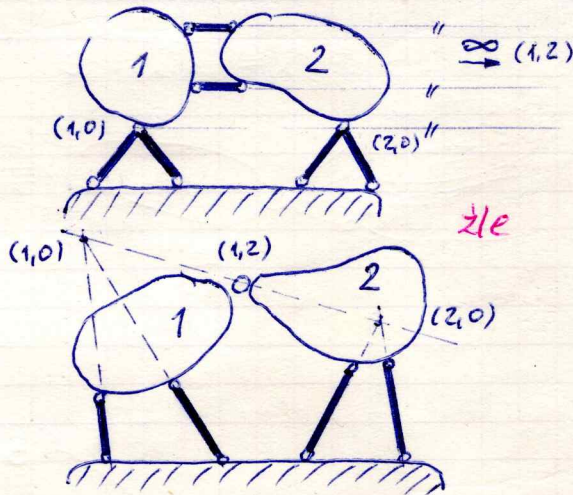 1 2 " ∞ (1,2)
"
(1,0) (2,0) "
źle
(1,0) (1,2) 2
1 (2,0)